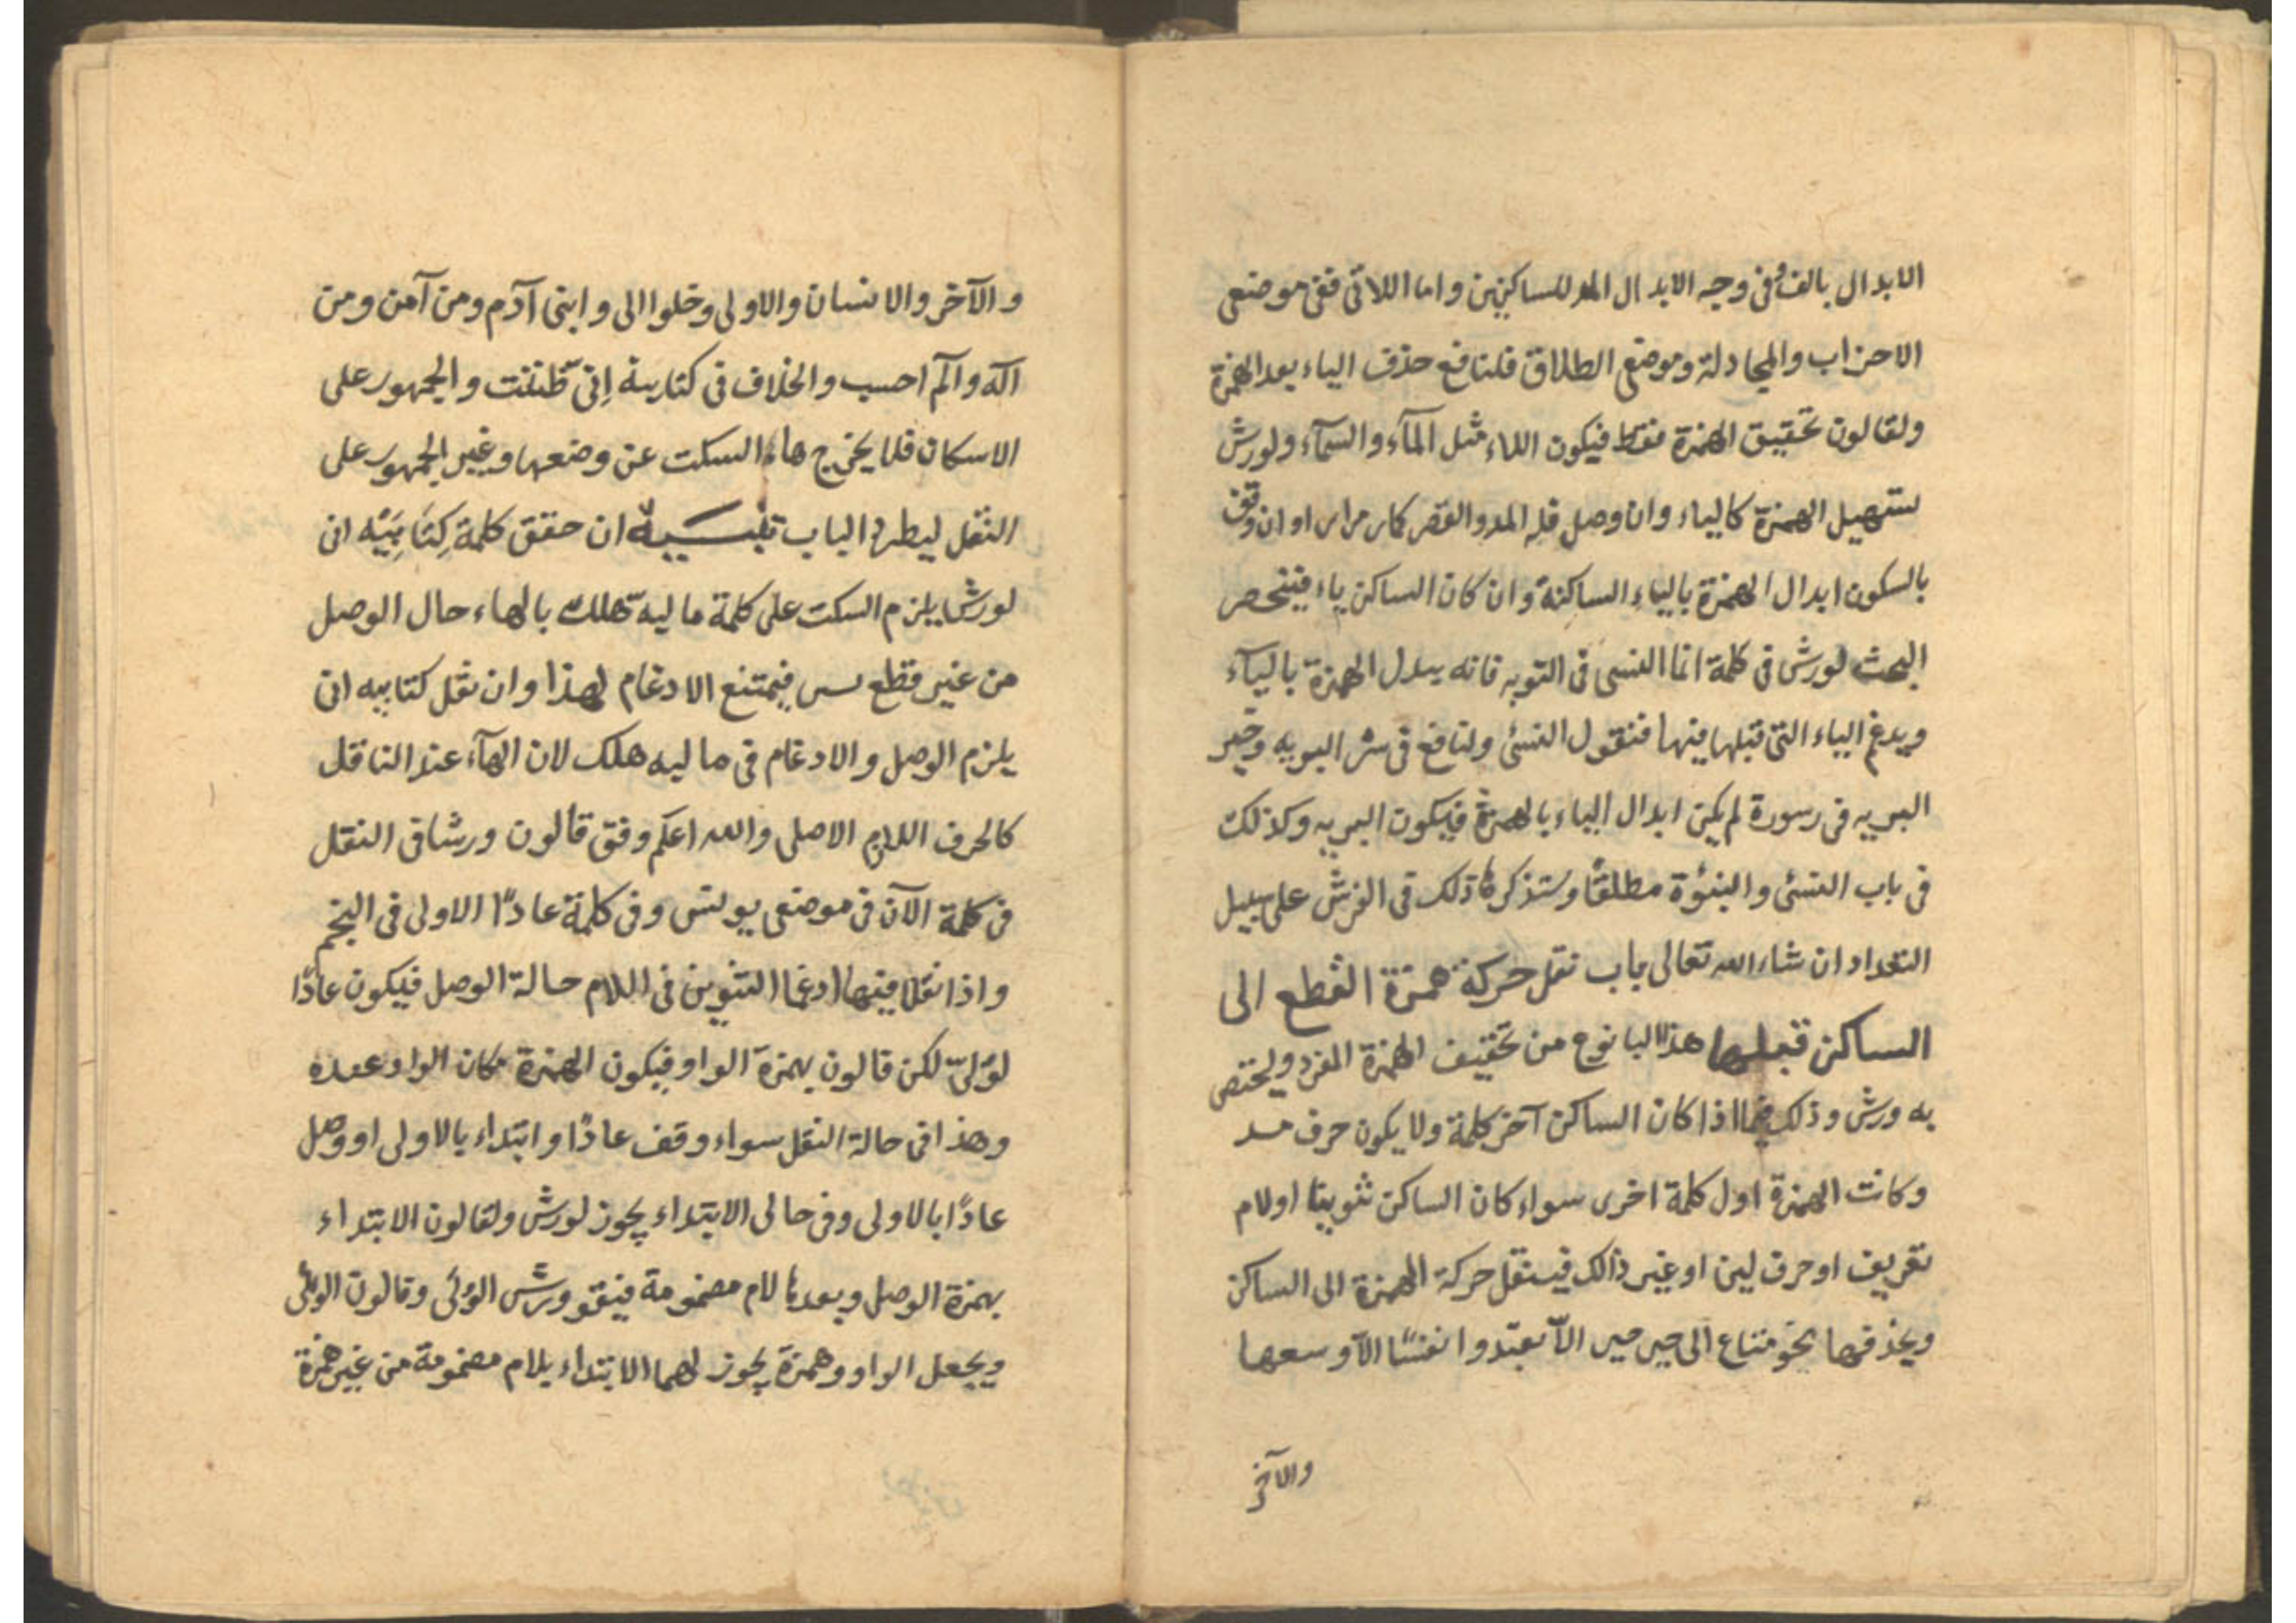 الابدال بالف وفى وجه الابدال المد للساكنين واما اللائى ففى موضعى
الاحزاب والمجادلة وموضعى الطلاق فلنافع حذف الياء بعد الهمزة
ولقالون تحقيق الهمزة فقط فيكون اللاء مثل المآء والسمآء ولورش
تسهيل الهمزة كالياء وان وصل فله المد والقصر كما مر او ان وقف
بالسكون ابدال الهمزة بالياء الساكنة وان كان الساكن ياء فينحصر
البحث لورش فى كلمة انما النسى فى التوبه فانه يبدل الهمزة باليآء
ويدغم الياء التى قبلها فيها فنقول النسى ولنافع فى شر البريه وخير
البريه فى سورة لم يكن ابدال الياء بالهمزة فيكون البريه وكذلك
فى باب النسئ والنبئوة مطلقًا وستذكر ذلك فى الفرش على سبيل
التعداد ان شاء الله تعالى باب نقل حركة همزة القطع الى
الساكن قبلها هذا البا نوع من تخفيف الهمزة المفرد ويختص
به ورش وذلك فيما اذا كان الساكن آخر كلمة ولا يكون حرف مد
وكانت الهمزة اول كلمة اخرى سواء كان الساكن تنوينا اولام
تعريف او حرف لين او غير ذالك فينقل حركة الهمزة الى الساكن
ويحذفها نحو متاع الى الاّ تعبدوا نفسًا الاّ وسعها
والآخر
والآخر والانسان والاولى وخلوا الى وابنى آدم ومن آمن ومن
اله والم احسب والخلاف فى كتابيه اِنى ظننت والجمهور على
الاسكان فلا يخرج هاء السكت عن وضعها وغير الجمهور على
النقل ليطرد الباب تنبيه ان حقق كلمة كِتَابِيَه انى
لورش يلزم السكت على كلمة ماليه هلك بالهاء حال الوصل
من غير قطع فيمتنع الادغام لهذا وان نقل كتابيه انى
يلزم الوصل والادغام فى ماليه هلك لان الهآء عند الناقل
كالحرف اللازم الاصلى والله اعلم وفق قالون ورشا فى النقل
فى كلمة الآن فى موضعى يونس وفى كلمة عادًا الاولى فى النجم
واذا نقلا فيها ادغما التنوين فى اللام حالة الوصل فيكون عادًا
لوُلىّ لكن قالون يهمزة الواو فيكون الهمزة مكان الواو عنده
وهذا فى حالة النقل سواء وقف عادًا وابتداء بالاولى او وصل
عادًا بالاولى وفى حالى الابتداء يجوز لورش ولقالون الابتداء
بهمزة الوصل وبعدها لام مضمومة فيقو ورش الوُلى وقالون الوئلى
ويجعل الواو وهمزة يجوز لهما الابتداء بلام مضمومة من غير همزة